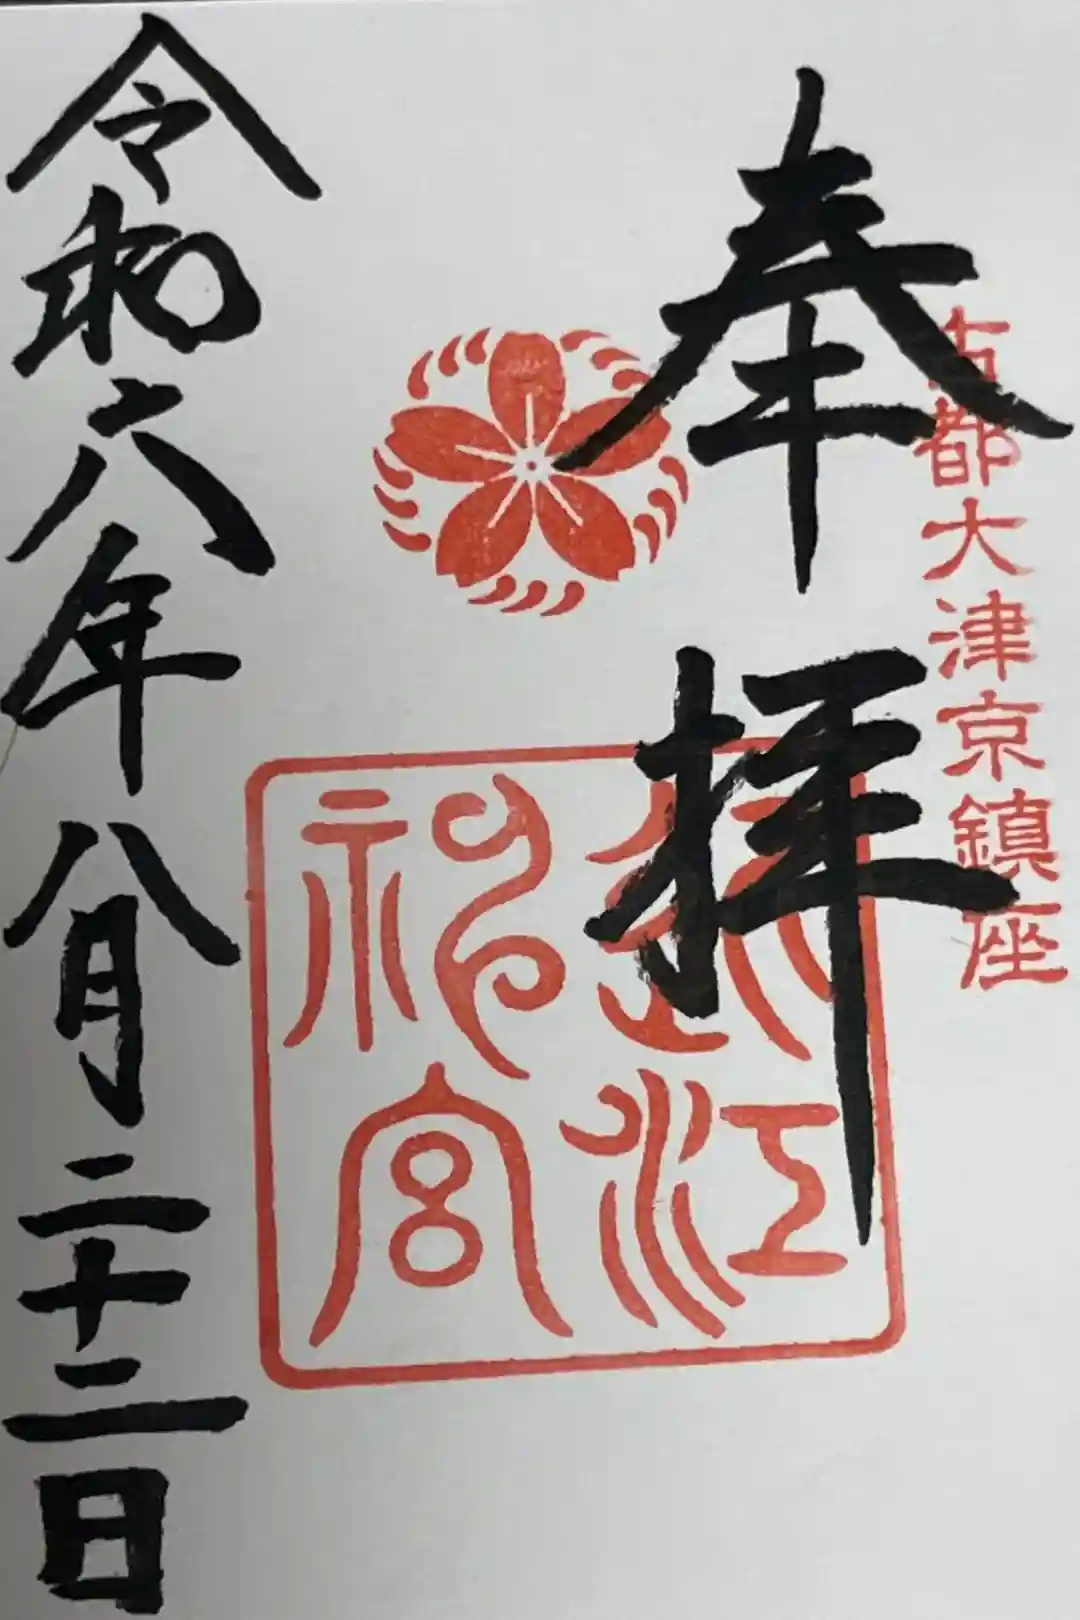 古都大津京鎮座
奉拝
近江
神宮
令和六年八月二十二日